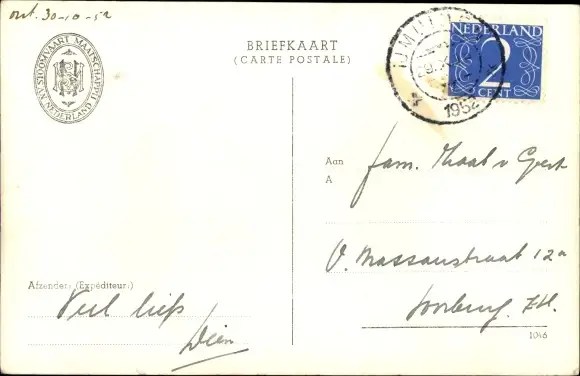 ont. 30-10-52
N.V. STOOMVAART MAATSCHAPPIJ NEDERLAND
BRIEFKAART
(CARTE POSTALE)
IJMUIDEN
1952
NEDERLAND
2
CENT
Aan
A
fam. Kraal v Gent
V. Nassaustraat 12a
Voorburg. Z.H.
Afzender: (Expéditeur:)
Veel liefs
Wien
1046